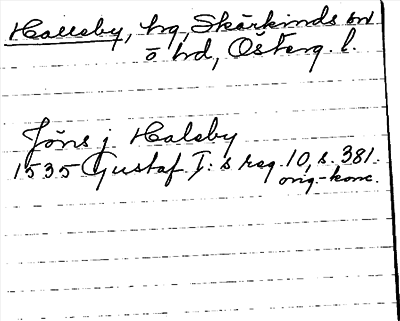 Halleby, hg, Skärkinds sn
o hd, Österg. l.
Jöns j Haleby
1535 Gustaf I:s reg. 10, s. 381.
orig.-konc.